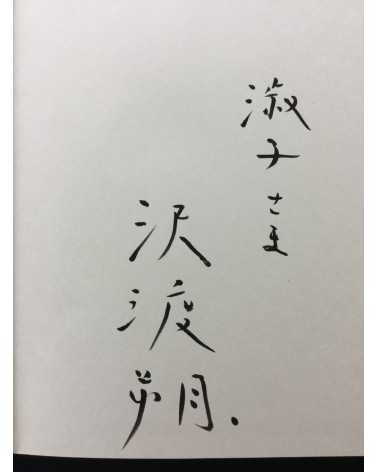 淑子さま
沢渡
朔.